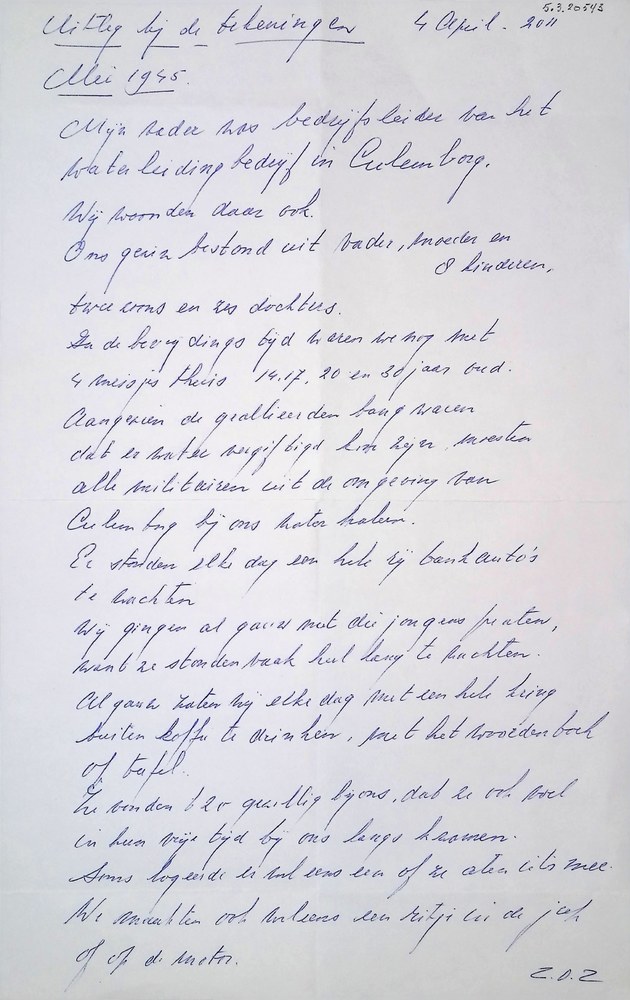 5.3.20543
Uitleg bij de tekeningen 4 April. 2011
Mei 1945.
Mijn vader was bedrijfsleider van het
waterleidingbedrijf in Culemborg.
Wij woonden daar ook.
Ons gezin bestond uit vader, moeder en
8 kinderen,
twee zoons en zes dochters.
In de bevrijdings tijd waren we nog met
4 meisjes thuis 14.17, 20 en 30 jaar oud.
Aangezien de geallieerden bang waren
dat er water vergiftigd kon zijn, moesten
alle militairen uit de omgeving van
Culemborg bij ons water halen.
Er stonden elke dag een hele rij tankauto's
te wachten
Wij gingen al gauw met die jongens praten,
want ze stonden vaak heel lang te wachten.
Al gauw zaten wij elke dag met een hele kring
buiten koffie te drinken, met het woordenboek
op tafel.
Ze vonden t zo gezellig bij ons, dat ze ook wel
in hun vrije tijd bij ons langs kwamen.
Soms logeerde er wel eens een of ze aten iets mee.
We maakten ook wel eens een ritje in de jeep
of op de motor.
Z.O.Z